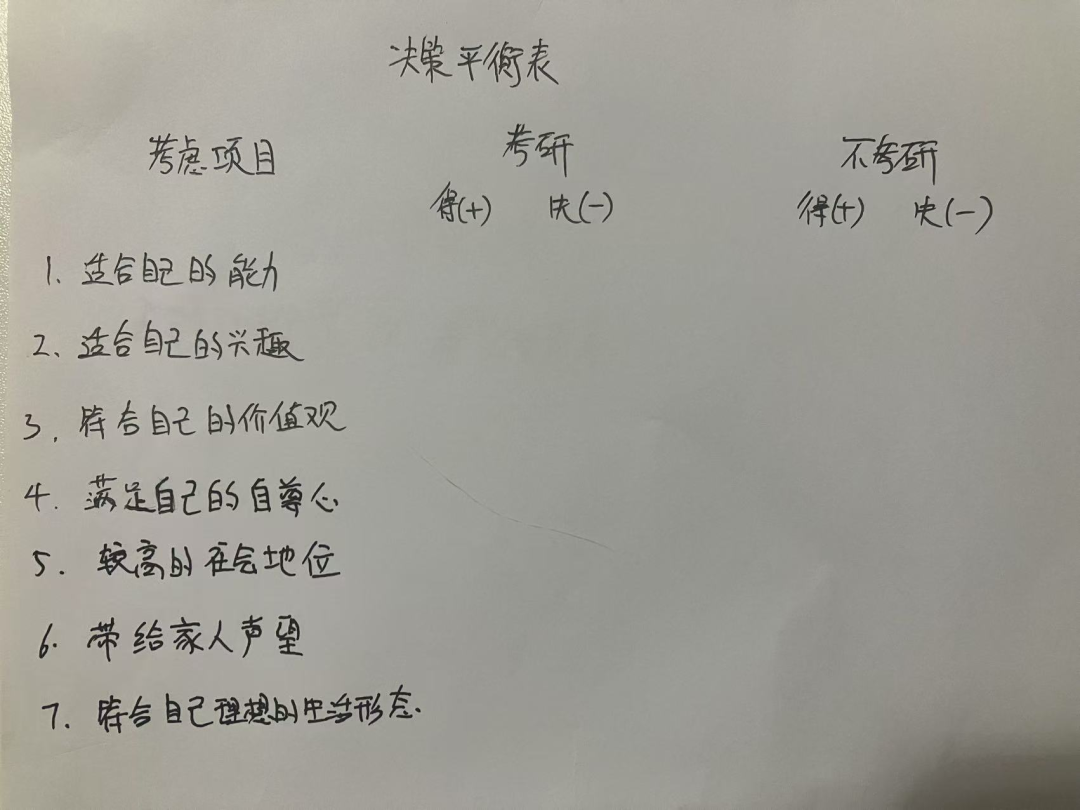 决策平衡表
考虑项目 考研 不考研
得(+) 失(-) 得(+) 失(-)
1. 适合自己的能力
2、适合自己的兴趣
3. 符合自己的价值观
4. 满足自己的自尊心
5. 较高的社会地位
6. 带给家人声望
7. 符合自己理想的生活形态.